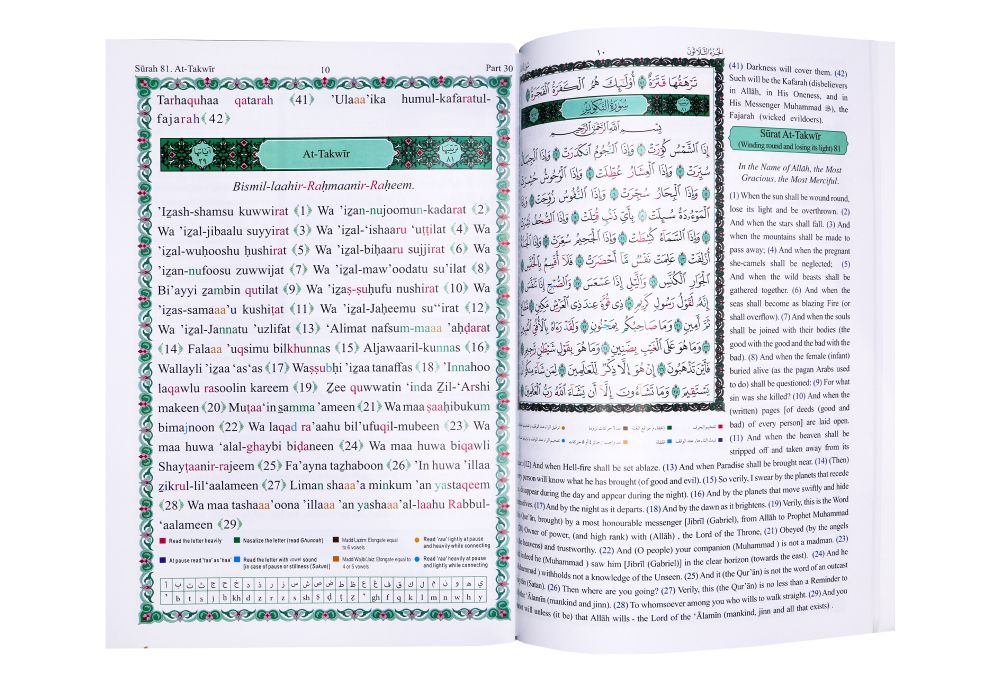 Sūrah 81. At-Takwīr 10 Part 30
Tarhaquhaa qatarah ﴾41﴿ ’Ulaaa’ika humul-kafaratul-
fajarah﴾42﴿
At-Takwīr
Bismil-laahir-Raḥmaanir-Raḥeem.
’Iẓash-shamsu kuwwirat ﴾1﴿ Wa ’iẓan-nujoomun-kadarat ﴾2﴿
Wa ’iẓal-jibaalu suyyirat ﴾3﴿ Wa ’iẓal-‘ishaaru ‘uṭṭilat ﴾4﴿ Wa
’iẓal-wuḥooshu ḥushirat ﴾5﴿ Wa ’iẓal-biḥaaru sujjirat ﴾6﴿ Wa
’iẓan-nufoosu zuwwijat ﴾7﴿ Wa ’iẓal-maw’oodatu su’ilat ﴾8﴿
Bi’ayyi ẓambin qutilat ﴾9﴿ Wa ’iẓaṣ-ṣuḥufu nushirat ﴾10﴿ Wa
’iẓas-samaaa’u kushiṭat ﴾11﴿ Wa ’iẓal-Jaḥeemu su‘‘irat ﴾12﴿
Wa ’iẓal-Jannatu ’uzlifat ﴾13﴿ ‘Alimat nafsum-maaa ’aḥḍarat
﴾14﴿ Falaaa ’uqsimu bilkhunnas ﴾15﴿ Aljawaaril-kunnas ﴾16﴿
Wallayli ’iẓaa ‘as‘as ﴾17﴿ Waṣṣubḥi ’iẓaa tanaffas ﴾18﴿ ’Innahoo
laqawlu rasoolin kareem ﴾19﴿ Ẓee quwwatin ‘inda Ẓil-‘Arshi
makeen ﴾20﴿ Muṭaa‘in samma ’ameen ﴾21﴿ Wa maa ṣaaḥibukum
bimajnoon ﴾22﴿ Wa laqad ra’aahu bil’ufuqil-mubeen ﴾23﴿ Wa
maa huwa ‘alal-ghaybi biḍaneen ﴾24﴿ Wa maa huwa biqawli
Shayṭaanir-rajeem ﴾25﴿ Fa’ayna taẓhaboon ﴾26﴿ ’In huwa ’illaa
ẓikrul-lil‘aalameen ﴾27﴿ Liman shaaa’a minkum ’an yastaqeem
﴾28﴿ Wa maa tashaaa’oona ’illaaa ’an yashaaa’al-laahu Rabbul-
‘aalameen ﴾29﴿
Read the letter heavily
Nasalize the letter (read GHunnah)
Madd Lazim: Elongate equal to 6 vowels
Read ‘raa’ lightly at pause and heavily while connecting
At pause read ‘taa’ as ‘haa’
Read the letter with vowel sound [in case of pause or stillness (Sakoon)]
Madd Wajib/Jaiz: Elongate equal to 4 or 5 vowels
Read ‘raa’ heavily at pause and lightly while connecting
ا ب ت ث ج ح خ د ذ ر ز س ش ص ض ط ظ ع غ ف ق ك ل م ن ه و ي
١٠ الجزء الثلاثون
تَرْهَقُهَا قَتَرَةٌ أُولَٰئِكَ هُمُ الْكَفَرَةُ الْفَجَرَةُ
سُورَةُ التَّكْوِيرِ
بِسْمِ اللَّهِ الرَّحْمَٰنِ الرَّحِيمِ
إِذَا الشَّمْسُ كُوِّرَتْ وَإِذَا النُّجُومُ انْكَدَرَتْ وَإِذَا الْجِبَالُ
سُيِّرَتْ وَإِذَا الْعِشَارُ عُطِّلَتْ وَإِذَا الْوُحُوشُ
وَإِذَا الْبِحَارُ سُجِّرَتْ وَإِذَا النُّفُوسُ زُوِّجَتْ
الْمَوْءُودَةُ سُئِلَتْ بِأَيِّ ذَنْبٍ قُتِلَتْ وَإِذَا الصُّحُفُ
وَإِذَا السَّمَاءُ كُشِطَتْ وَإِذَا الْجَحِيمُ سُعِّرَتْ
أُزْلِفَتْ عَلِمَتْ نَفْسٌ مَا أَحْضَرَتْ فَلَا أُقْسِمُ
الْجَوَارِ الْكُنَّسِ وَاللَّيْلِ إِذَا عَسْعَسَ وَالصُّبْحِ إِذَا تَنَفَّسَ
إِنَّهُ لَقَوْلُ رَسُولٍ كَرِيمٍ ذِي قُوَّةٍ عِنْدَ ذِي الْعَرْشِ مَكِينٍ
ثَمَّ أَمِينٍ وَمَا صَاحِبُكُمْ بِمَجْنُونٍ وَلَقَدْ رَآهُ بِالْأُفُقِ
وَمَا هُوَ عَلَى الْغَيْبِ بِضَنِينٍ وَمَا هُوَ بِقَوْلِ شَيْطَانٍ رَجِيمٍ
فَأَيْنَ تَذْهَبُونَ إِنْ هُوَ إِلَّا ذِكْرٌ لِلْعَالَمِينَ
يَسْتَقِيمَ وَمَا تَشَاءُونَ إِلَّا أَنْ يَشَاءَ اللَّهُ رَبُّ الْعَالَمِينَ
(41) Darkness will cover them. (42)
Such will be the Kafarah (disbelievers
in Allāh, in His Oneness, and in
His Messenger Muhammad ﷺ), the
Fajarah (wicked evildoers).
Sūrat At-Takwīr
(Winding round and losing its light) 81
In the Name of Allāh, the Most
Gracious, the Most Merciful.
(1) When the sun shall be wound round,
lose its light and be overthrown. (2)
And when the stars shall fall. (3) And
when the mountains shall be made to
pass away; (4) And when the pregnant
she-camels shall be neglected; (5)
And when the wild beasts shall be
gathered together. (6) And when the
seas shall become as blazing Fire (or
shall overflow). (7) And when the souls
shall be joined with their bodies (the
good with the good and the bad with the
bad). (8) And when the female (infant)
buried alive (as the pagan Arabs used
to do) shall be questioned: (9) For what
sin was she killed? (10) And when the
(written) pages [of deeds (good and
bad) of every person] are laid open.
(11) And when the heaven shall be
stripped off and taken away from its
(12) And when Hell-fire shall be set ablaze. (13) And when Paradise shall be brought near. (14) (Then)
person will know what he has brought (of good and evil). (15) So verily, I swear by the planets that recede
disappear during the day and appear during the night). (16) And by the planets that move swiftly and hide
(17) And by the night as it departs. (18) And by the dawn as it brightens. (19) Verily, this is the Word
Qur’ān, brought) by a most honourable messenger [Jibrīl (Gabriel), from Allāh to Prophet Muhammad
Owner of power, (and high rank) with (Allāh) , the Lord of the Throne, (21) Obeyed (by the angels
heavens) and trustworthy. (22) And (O people) your companion (Muhammad ) is not a madman. (23)
indeed he (Muhammad ) saw him [Jibrīl (Gabriel)] in the clear horizon (towards the east). (24) And he
(Muhammad ) withholds not a knowledge of the Unseen. (25) And it (the Qur’ān) is not the word of an outcast
(Satan). (26) Then where are you going? (27) Verily, this (the Qur’ān) is no less than a Reminder to
‘Ālamīn (mankind and jinn). (28) To whomsoever among you who wills to walk straight. (29) And you
will unless (it be) that Allāh wills - the Lord of the ‘Ālamīn (mankind, jinn and all that exists) .